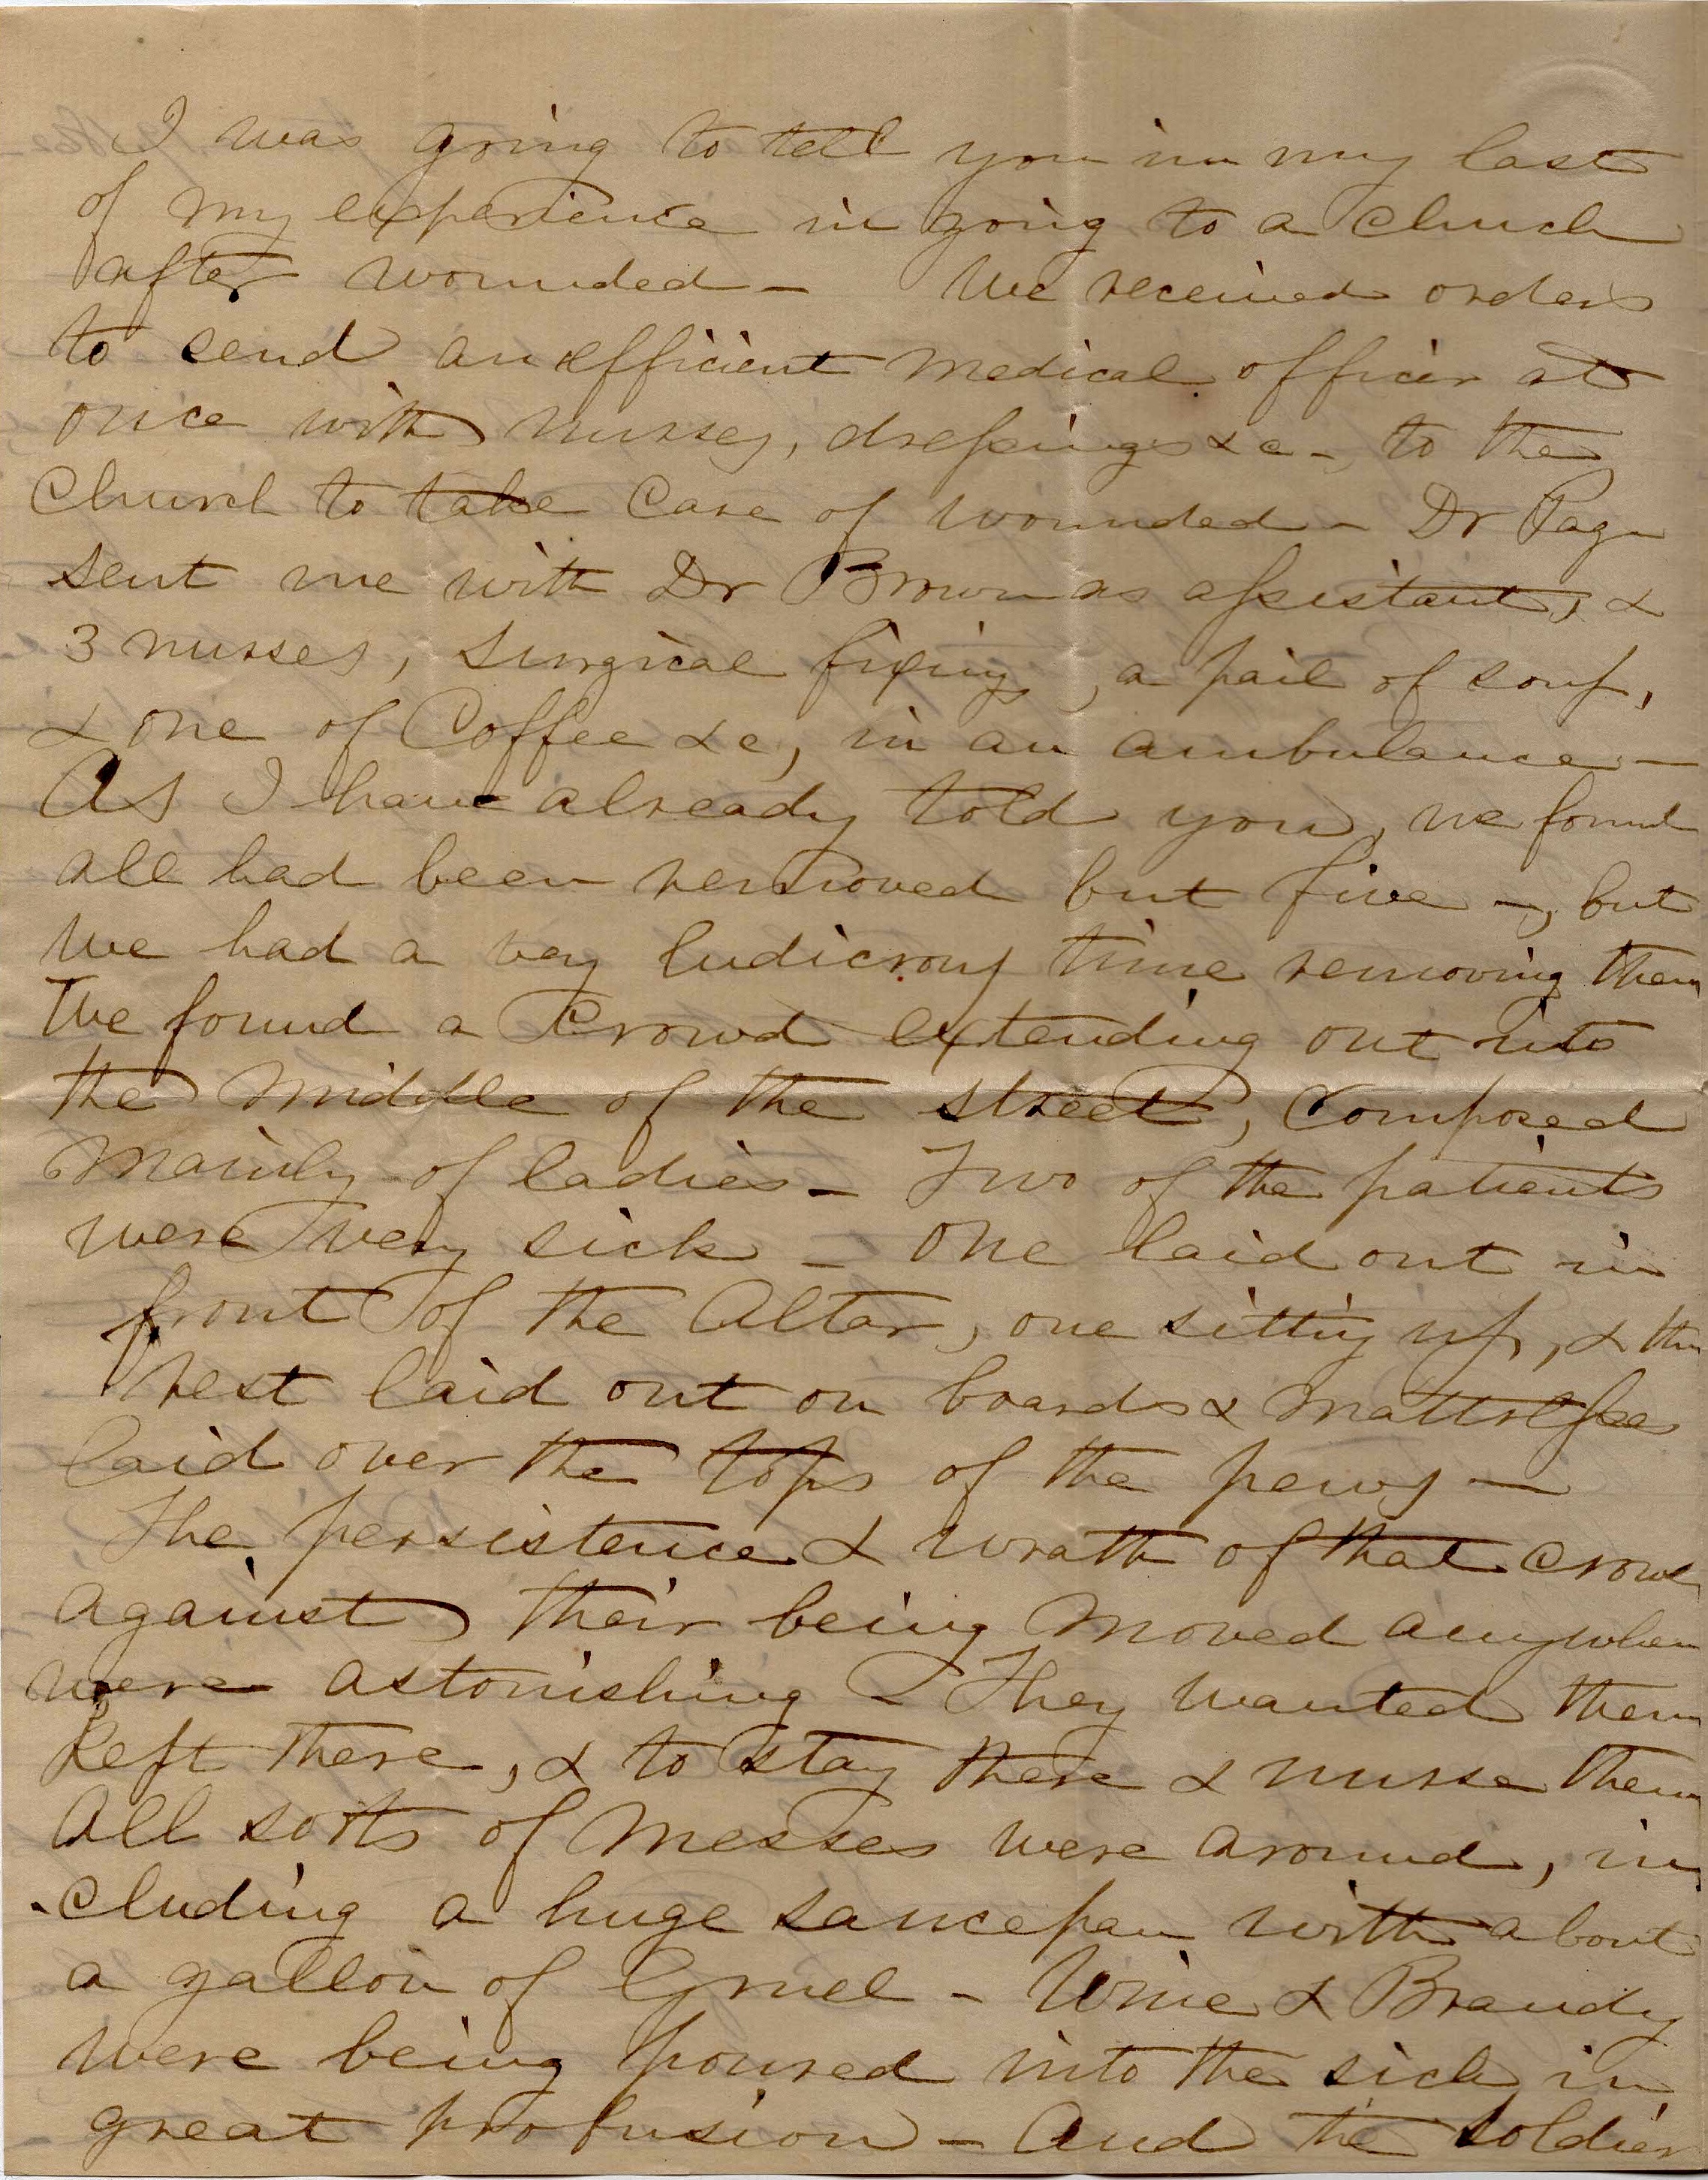 I was going to tell you in my last
of my experience in going to a church
after wounded – We received orders
to send an efficient medical officer at
once with nurses, dressings &c –, to the
Church to take care of wounded – Dr Page
sent me with Dr Brown as assistant, &
3 nurses, surgical fixings, a pail of soup,
& one of Coffee &c, in an ambulance –
As I have already told you, we found
all had been removed but five –, but
we had a very ludicrous time removing them
We found a crowd extending out into
the middle of the street, composed
mainly of ladies – Two of the patients
were very sick – One laid out in
front of the Altar, one sitting up, & the
rest laid out on boards & mattresses
laid over the tops of the pews –
The persistence & wrath of that crowd
against their being moved anywhere
were astonishing – They wanted them
left there, & to stay there & nurse them
All sorts of messes were around, in
-cluding a huge saucepan with about
a gallon of Gruel – Wine & Brandy
were being poured into the sick in
great profusion – And the soldier